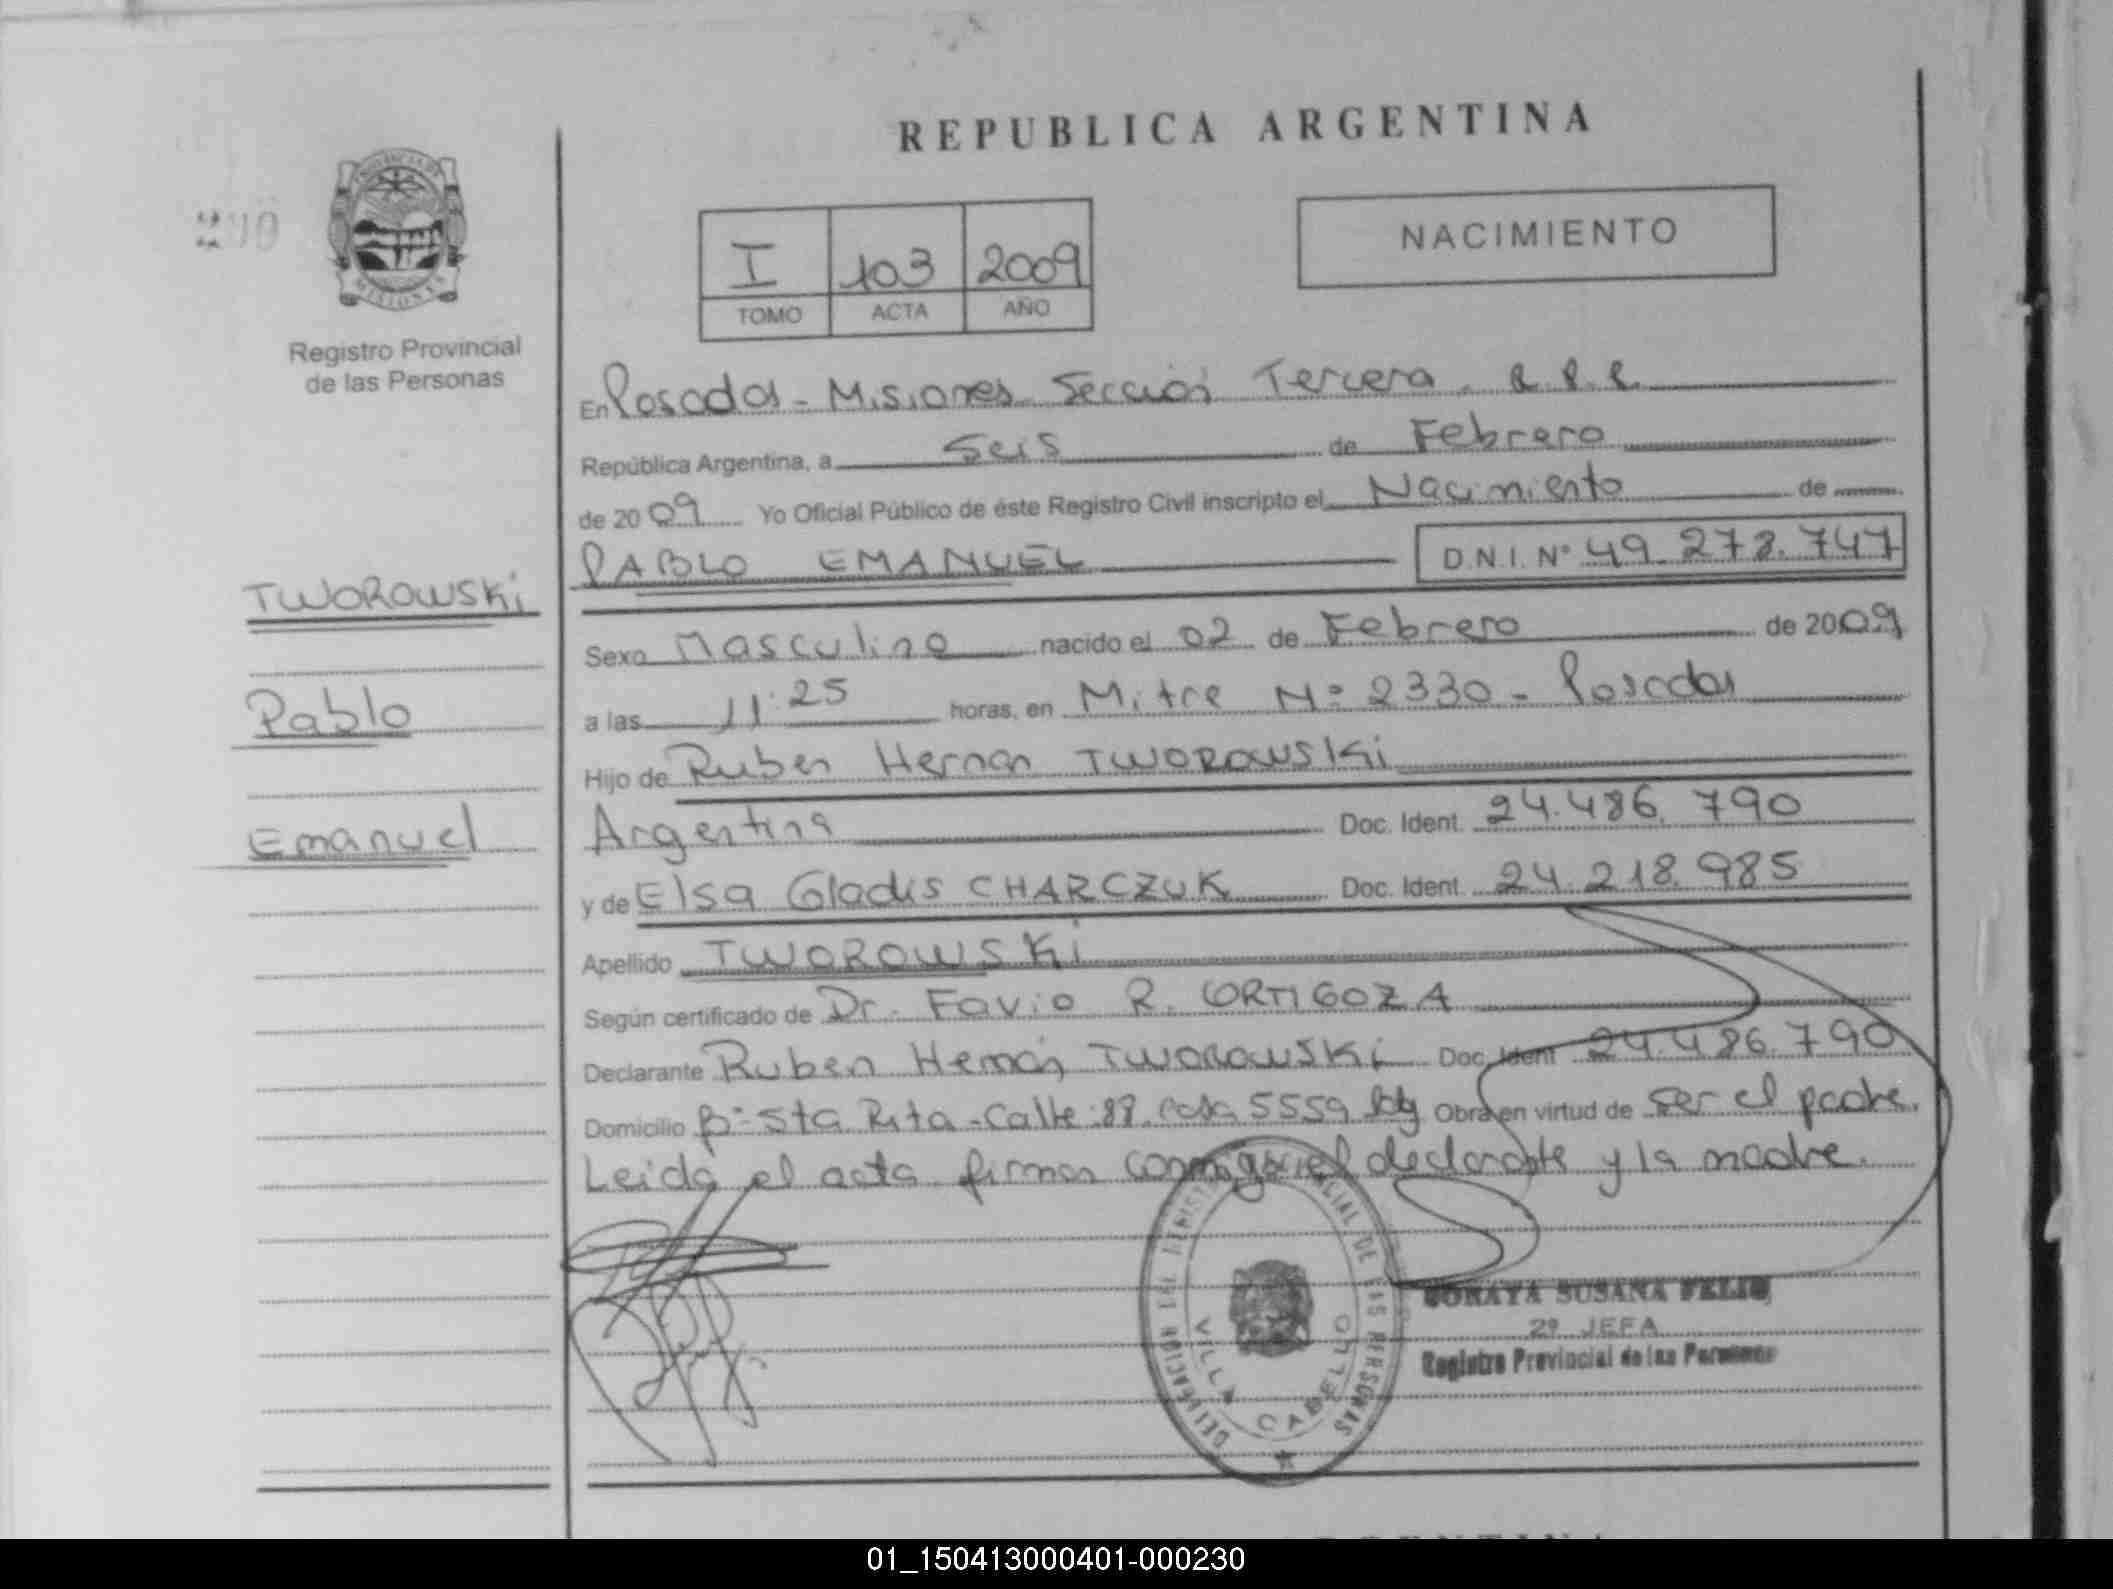 REPUBLICA ARGENTINA
PROVINCIA DE
MISIONES
Registro Provincial
de las Personas
I 103 2009
TOMO ACTA AÑO
NACIMIENTO
En Posadas - Misiones Sección Tercera. R. P. P.
República Argentina, a Seis de Febrero
de 2009 Yo Oficial Público de éste Registro Civil inscripto el Nacimiento de
PABLO EMANUEL D.N.I. Nº 49.278.747
TWOROWSKi
Pablo
Emanuel
Sexo Masculino nacido el 02 de Febrero de 2009
a las 11:25 horas, en Mitre Nº 2330 - Posadas
Hijo de Ruben Hernan TWOROWSKi
Argentina Doc. Ident. 24.486.790
y de Elsa Gladis CHARCZUK Doc. Ident. 24.218.985
Apellido TWOROWSKi
Según certificado de Dr. Favio R. ORTIGOZA
Declarante Ruben Hernán TWOROWSKi Doc. Ident 24.486.790
Domicilio Bº Sta Rita - Calle 89 casa 5559 Obra en virtud de ser el padre.
Leida el acta firman conmigo el declarante y la madre.
DELEGACION DEL REGISTRO PROVINCIAL DE LAS PERSONAS
VILLA CABELLO
SORAYA SUSANA FELIU
2º JEFA
Registro Provincial de las Personas
01_150413000401-000230